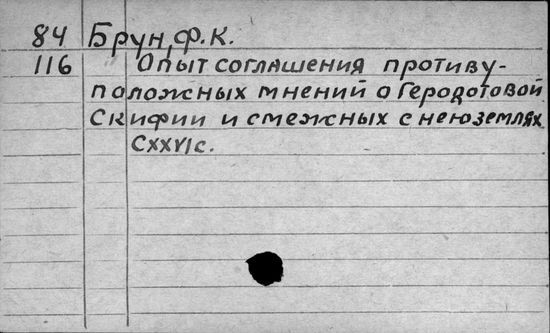 84 Брун, Ф.К.
116 Опыт соглашения противу-
положных мнений о Геродотовой
Скифии и смежных с нею землях
CXXVIс.